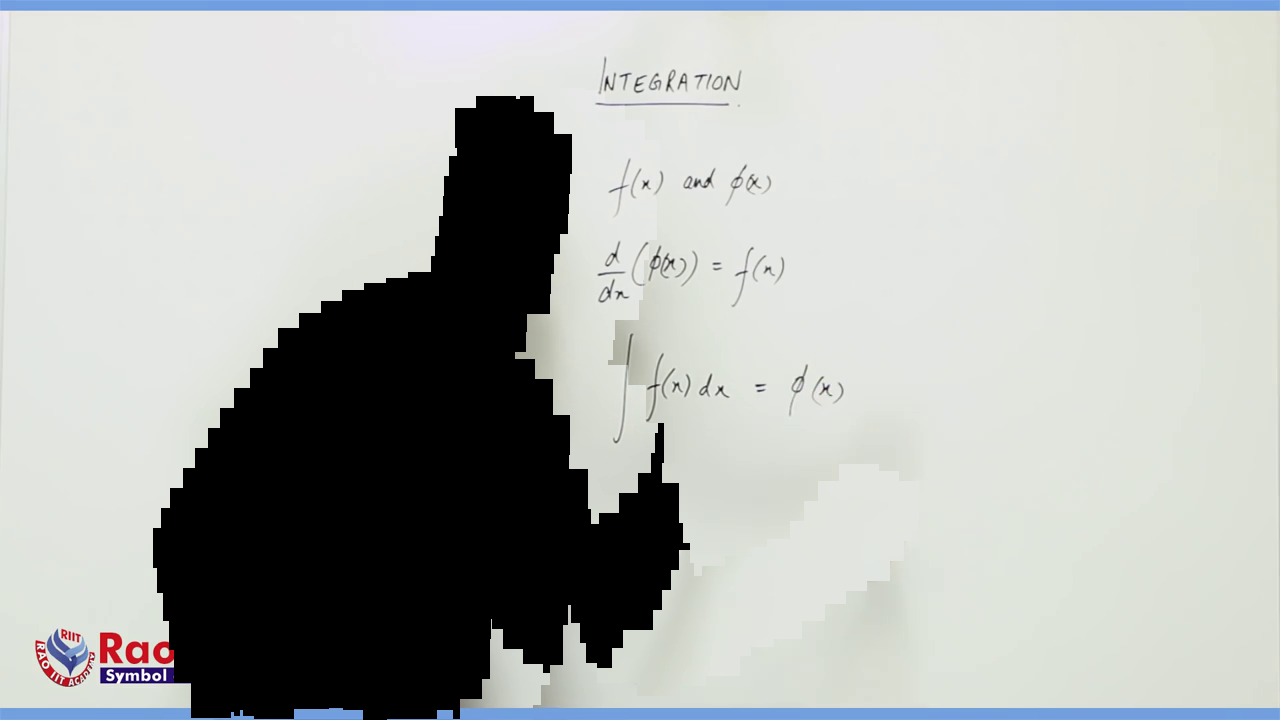 INTEGRATION.
f(x) and ϕ(x)
d/dx (ϕ(x)) = f(x)
∫ f(x) dx = ϕ(x)
RIIT
RAO IIT ACADEMY
Rao
Symbol